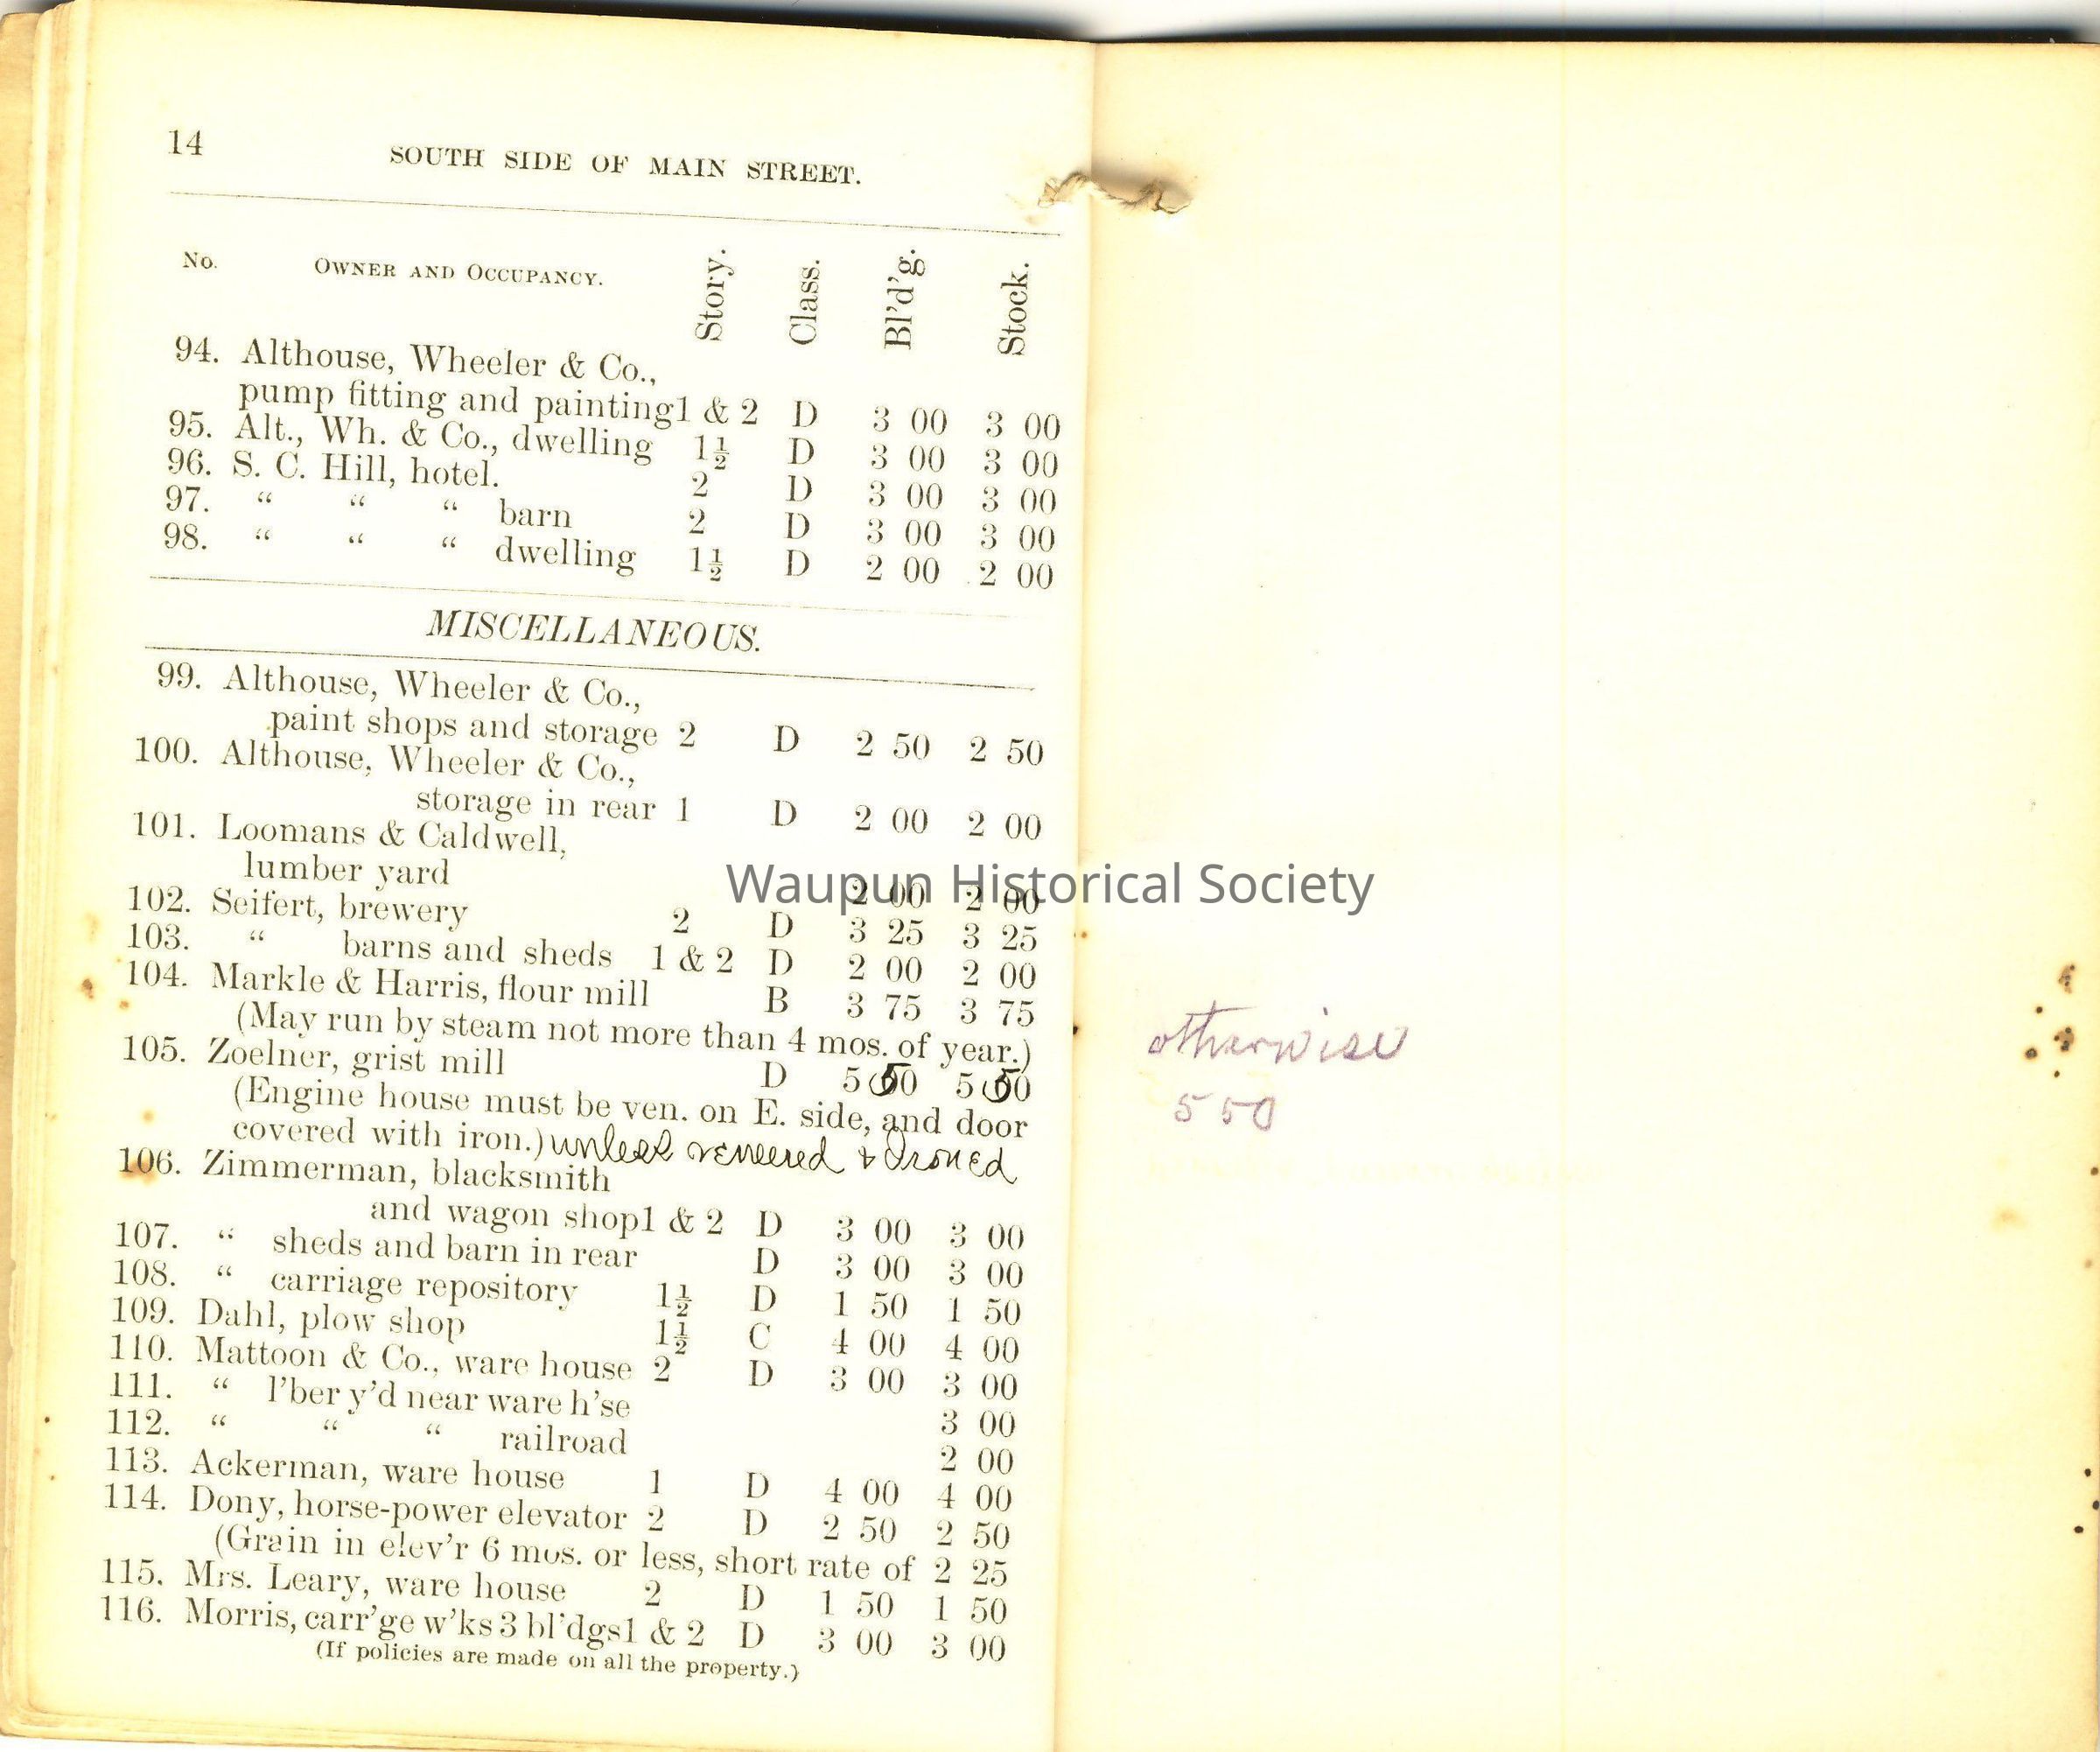 14
SOUTH SIDE OF MAIN STREET.
No. OWNER AND OCCUPANCY. Story. Class. Bl'd'g. Stock.
94. Althouse, Wheeler & Co.,
pump fitting and painting 1 & 2 D 3 00 3 00
95. Alt., Wh. & Co., dwelling 1½ D 3 00 3 00
96. S. C. Hill, hotel. 2 D 3 00 3 00
97. “ “ “ barn 2 D 3 00 3 00
98. “ “ “ dwelling 1½ D 2 00 2 00
MISCELLANEOUS.
99. Althouse, Wheeler & Co.,
paint shops and storage 2 D 2 50 2 50
100. Althouse, Wheeler & Co.,
storage in rear 1 D 2 00 2 00
101. Loomans & Caldwell,
lumber yard 2 00 2 00
Waupun Historical Society
102. Seifert, brewery 2 D 3 25 3 25
103. “ barns and sheds 1 & 2 D 2 00 2 00
104. Markle & Harris, flour mill B 3 75 3 75
(May run by steam not more than 4 mos. of year.)
105. Zoelner, grist mill D 5 50 5 50
(Engine house must be ven. on E. side, and door
covered with iron.) unless veneered & Ironed
106. Zimmerman, blacksmith
and wagon shop 1 & 2 D 3 00 3 00
107. “ sheds and barn in rear D 3 00 3 00
108. “ carriage repository 1½ D 1 50 1 50
109. Dahl, plow shop 1½ C 4 00 4 00
110. Mattoon & Co., ware house 2 D 3 00 3 00
111. “ l'ber y'd near ware h'se 3 00
112. “ “ “ railroad 2 00
113. Ackerman, ware house 1 D 4 00 4 00
114. Dony, horse-power elevator 2 D 2 50 2 50
(Grain in elev'r 6 mos. or less, short rate of 2 25
115. Mrs. Leary, ware house 2 D 1 50 1 50
116. Morris, carr'ge w'ks 3 bl'dgs 1 & 2 D 3 00 3 00
(If policies are made on all the property.)
otherwise
5 50